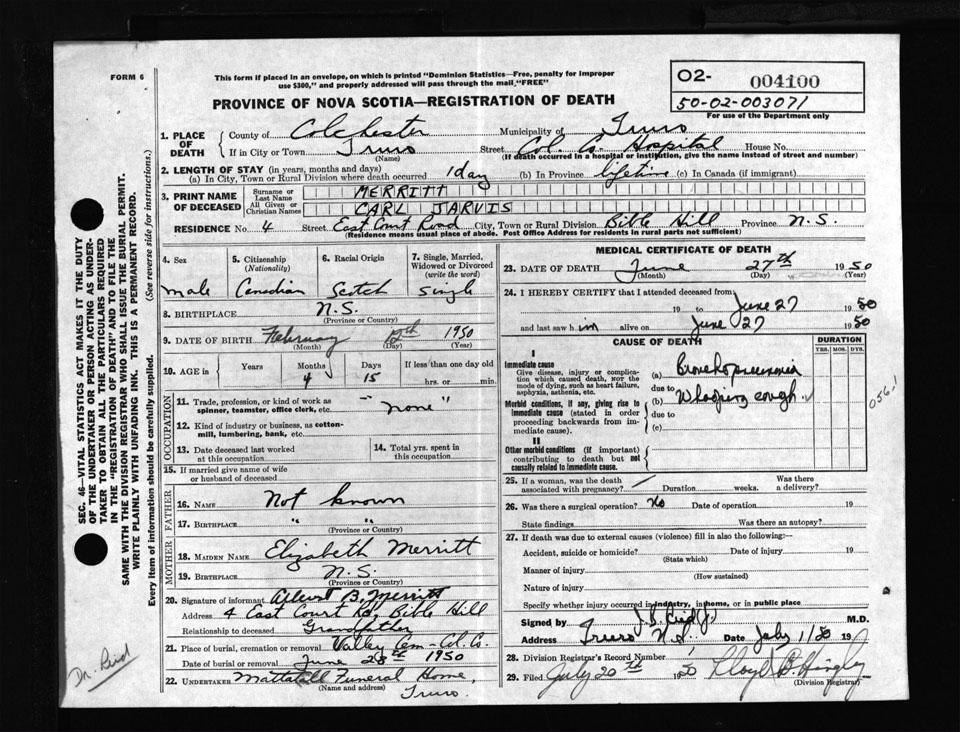 FORM 6
This form if placed in an envelope, on which is printed "Dominion Statistics—Free, penalty for improper
use $300," and properly addressed will pass through the mail "FREE"
O2- 004100
50-02-003071
For use of the Department only
PROVINCE OF NOVA SCOTIA—REGISTRATION OF DEATH
1. PLACE OF DEATH
County of Colchester Municipality of Truro
If in City or Town Truro Street Col. Co. Hospital House No.
(Name) (If death occurred in a hospital or institution, give the name instead of street and number)
2. LENGTH OF STAY (in years, months and days)
(a) In City, Town or Rural Division where death occurred 1 day (b) In Province lifetime (c) In Canada (if immigrant)
3. PRINT NAME OF DECEASED
Surname or Last Name MERRITT
All Given or Christian Names CARL JARVIS
RESIDENCE No. 4 Street East Court Road City, Town or Rural Division Bible Hill Province N.S.
(Residence means usual place of abode. Post Office Address for residents in rural parts not sufficient)
4. Sex male
5. Citizenship (Nationality) Canadian
6. Racial Origin Scotch
7. Single, Married, Widowed or Divorced (write the word) Single
8. BIRTHPLACE N.S.
(Province or Country)
9. DATE OF BIRTH February 1950
(Month) (Day) (Year)
10. AGE in Years Months 4 Days 15 If less than one day old
hrs. or min.
OCCUPATION
11. Trade, profession or kind of work as spinner, teamster, office clerk, etc. "none"
12. Kind of industry or business, as cotton-mill, lumbering, bank, etc.
13. Date deceased last worked at this occupation
14. Total yrs. spent in this occupation
15. If married give name of wife or husband of deceased
FATHER
16. NAME Not known
17. BIRTHPLACE " "
(Province or Country)
MOTHER
18. MAIDEN NAME Elizabeth Merritt
19. BIRTHPLACE N.S.
(Province or Country)
20. Signature of informant Albert B. Merritt
Address 4 East Court Rd, Bible Hill
Relationship to deceased Grandfather
21. Place of burial, cremation or removal Valley Cem - Col. Co.
Date of burial or removal June 28th 1950
22. UNDERTAKER Mattatall Funeral Home,
(Name and address) Truro.
MEDICAL CERTIFICATE OF DEATH
23. DATE OF DEATH June 27th 1950
(Month) (Day) (Year)
24. I HEREBY CERTIFY that I attended deceased from
19 to June 27 1950
and last saw h im alive on June 27 1950
CAUSE OF DEATH
DURATION
YRS. MOS. DYS.
I
Immediate cause
Give disease, injury or complication which caused death, NOT the mode of dying, such as heart failure, asphyxia, asthenia, etc.
(a) Bronchopneumonia
due to
Morbid conditions, if any, giving rise to immediate cause (stated in order proceeding backwards from immediate cause).
(b) Whooping cough
due to
(c)
II
Other morbid conditions (if important) contributing to death but not causally related to immediate cause.
25. If a woman, was the death associated with pregnancy? Duration weeks. Was there a delivery?
26. Was there a surgical operation? No Date of operation 19
State findings Was there an autopsy?
27. If death was due to external causes (violence) fill in also the following:—
Accident, suicide or homicide? Date of injury 19
(State which)
Manner of injury
(How sustained)
Nature of injury
Specify whether injury occurred in industry, in home, or in public place
Signed by J.B. Reid Jr. M.D.
Address Truro N.S. Date July 1/50 19
28. Division Registrar's Record Number
29. Filed July 20th 1950 Lloyd B. Hingley
(Division Registrar)
SEC. 46—VITAL STATISTICS ACT MAKES IT THE DUTY
OF THE UNDERTAKER OR PERSON ACTING AS UNDER-
TAKER TO OBTAIN ALL THE PARTICULARS REQUIRED
IN THE "REGISTRATION OF DEATH" AND TO FILE THE
SAME WITH THE DIVISION REGISTRAR WHO SHALL ISSUE THE BURIAL PERMIT.
WRITE PLAINLY WITH UNFADING INK. THIS IS A PERMANENT RECORD.
Every item of information should be carefully supplied. (See reverse side for instructions.)
Dr. Reid